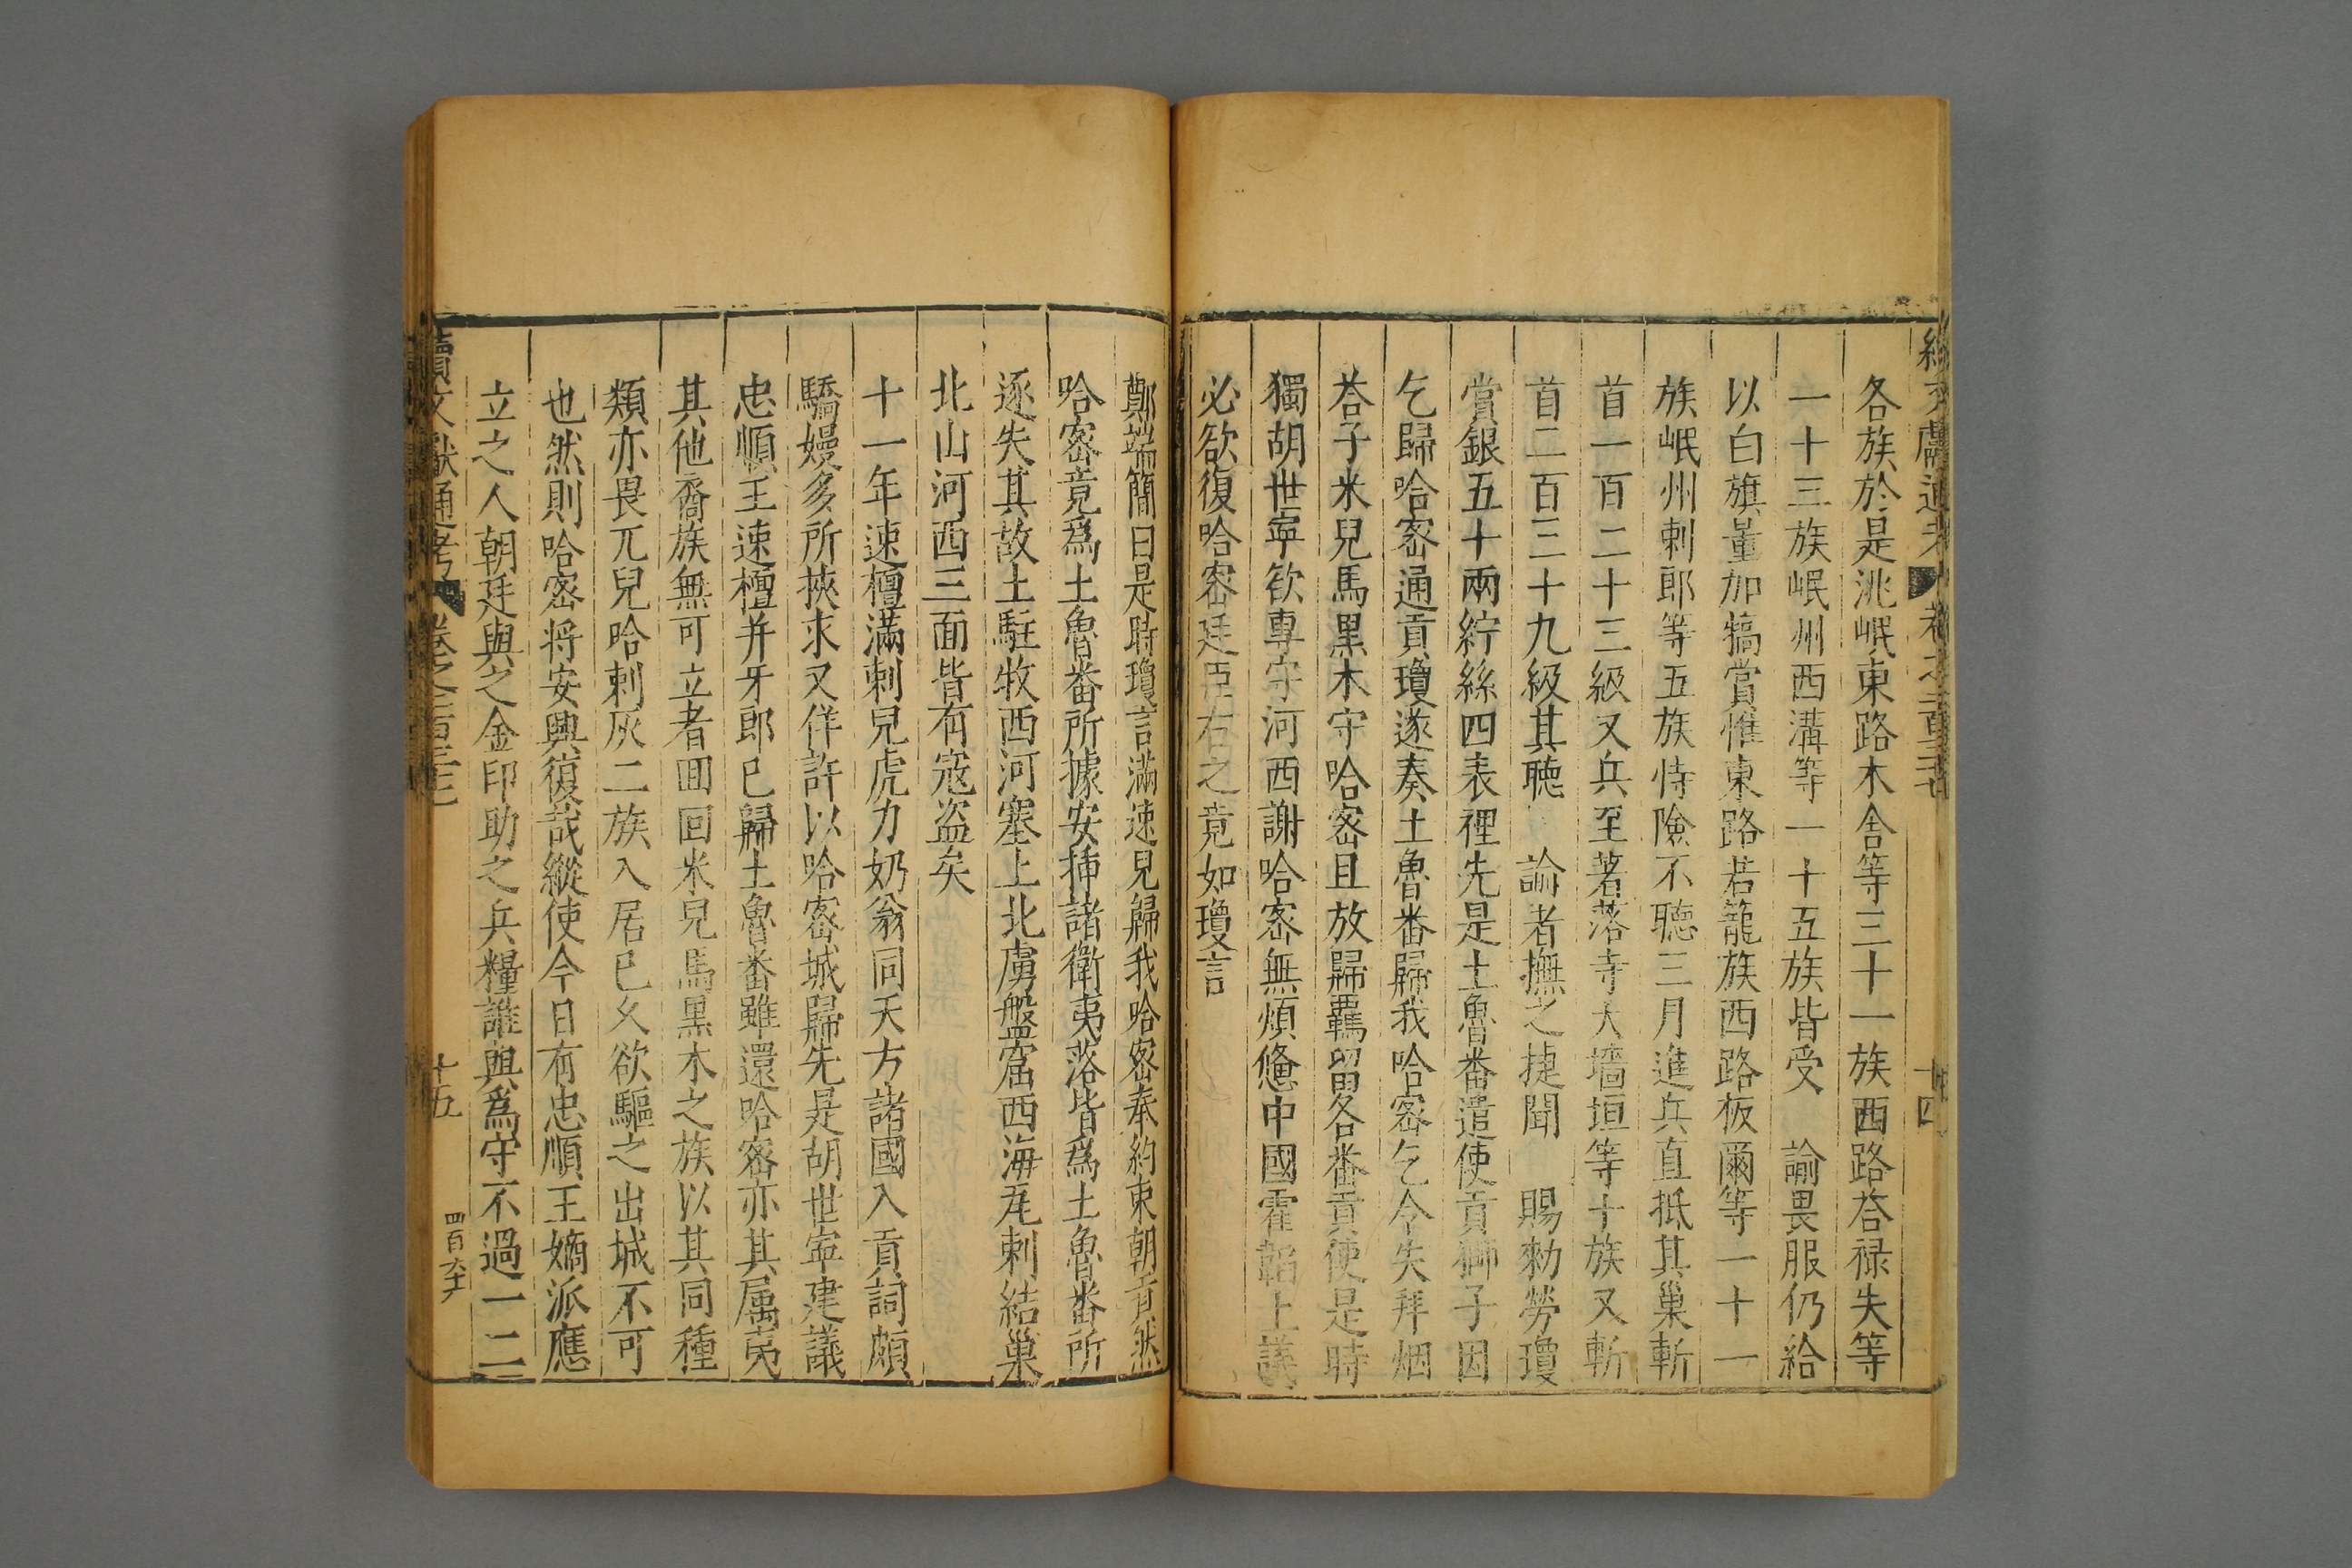 各族於是洮岷東路木舍等三十一族西路荅禄失等
一十三族岷州西溝等一十五族皆受　諭畏服仍給
以白旗量加犒賞惟東路若籠族西路板爾等一十一
族岷州剌郎等五族恃險不聽三月進兵直抵其巢斬
首一百二十三級又兵至著落寺大墻垣等十族又斬
首二百三十九級其聽　諭者撫之捷聞　賜勑勞瓊
賞銀五十兩紵絲四表裡先是土魯番遣使貢獅子因
乞歸哈密通貢瓊遂奏土魯番歸我哈密乞令失拜烟
荅子米兒馬黑木守哈密且放歸羈留各番貢使是時
獨胡世寧欲專守河西謝哈密無煩憊中國霍韜上議
必欲復哈密廷臣右之竟如瓊言
鄭端簡曰是時瓊言滿速兒歸我哈密奉約束朝貢然
哈密竟爲土魯番所據安揷諸衛夷落皆爲土魯番所
逐失其故土駐牧西河塞上北虜盤窟西海瓦剌結巢
北山河西三面皆有寇盗矣
十一年速檀滿剌兒虎力奶翁同天方諸國入貢詞頗
驕嫚多所挾求又佯許以哈密城歸先是胡世寧建議
忠順王速檀并牙郎已歸土魯番雖還哈密亦其属夷
其他裔族無可立者囬回米兒馬黒木之族以其同種
類亦畏兀兒哈剌灰二族入居已久欲驅之出城不可
也然則哈密将安興復哉縱使今日有忠順王嫡派應
立之人朝廷與之金印助之兵糧誰與爲守不過一二
續文獻通考
十五
四百六十